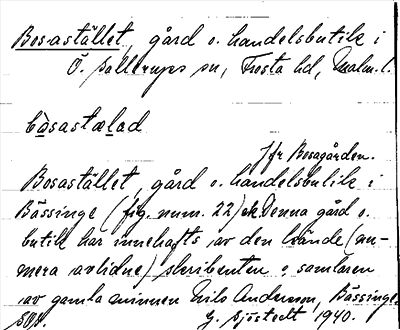 Bosastället, gård o. handelsbutik i
Ö. Sallerups sn, Frosta hd, Malm. l.
bòsastælad
Jfr Bosagården.
Bosastället, gård o. handelsbutik i
Bässinge (fig. num. 22) Denna gård o.
butik har innehafts av den kände (nu-
mera avlidne) skribenten o. samlaren
av gamla minnen Nils Andersson, Bässinge.
G. Sjöstedt 1940.